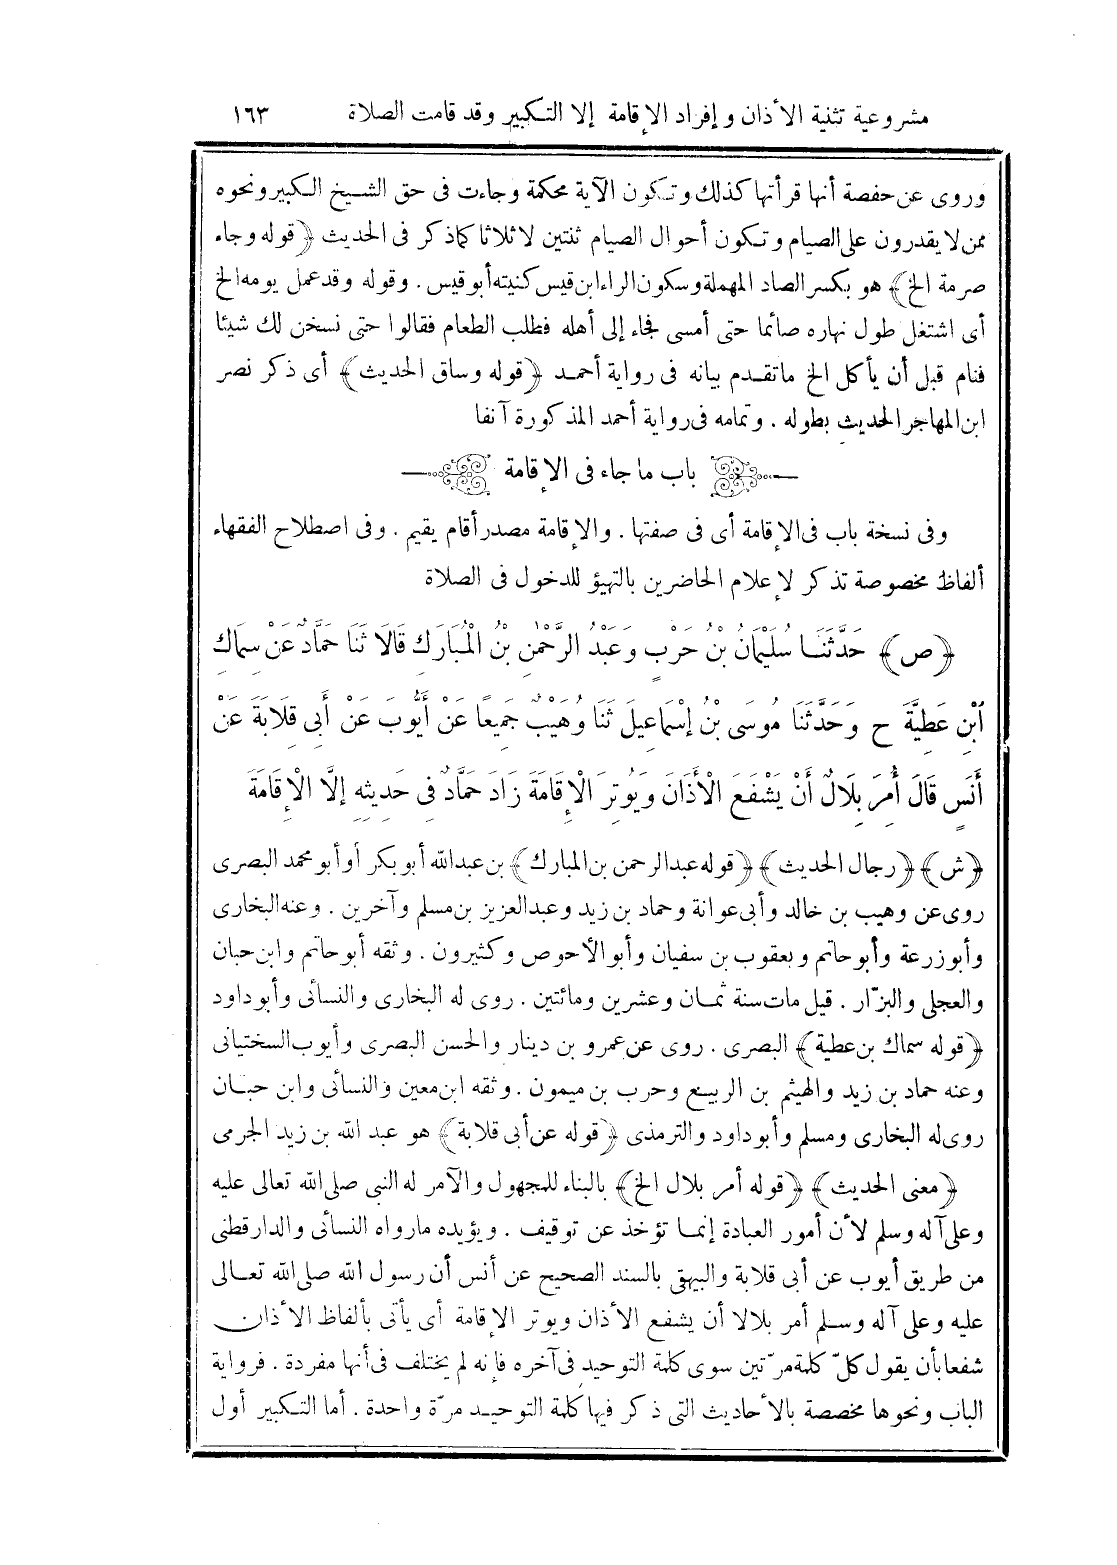 مشروعية تثنية الأذان وإفراد الإقامة إلا التكبير وقد قامت الصلاة ١٦٣
وروى عن حفصة أنها قرأتها كذلك وتكون الآية محكمة وجاءت فى حق الشيخ الكبير ونحوه
ممن لا يقدرون على الصيام وتكون أحوال الصيام ثنتين لا ثلاثا كما ذكر فى الحديث ﴿قوله وجاء
صرمة الخ﴾ هو بكسر الصاد المهملة وسكون الراء ابن قيس كنيته أبو قيس . وقوله وقد عمل يومه الخ
أى اشتغل طول نهاره صائما حتى أمسى فجاء إلى أهله فطلب الطعام فقالوا حتى نسخن لك شيئا
فنام قبل أن يأكل الخ ما تقدم بيانه فى رواية أحمد ﴿قوله وساق الحديث﴾ أى ذكر نصر
ابن المهاجر الحديث بطوله . وتمامه فى رواية أحمد المذكورة آنفا
باب ما جاء فى الإقامة
وفى نسخة باب فى الإقامة أى فى صفتها . والإقامة مصدر أقام يقيم . وفى اصطلاح الفقهاء
ألفاظ مخصوصة تذكر لإعلام الحاضرين بالتهيؤ للدخول فى الصلاة
﴿ص﴾ حَدَّثَنَا سُلَيْمَانُ بْنُ حَرْبٍ وَعَبْدُ الرَّحْمٰنِ بْنُ الْمُبَارَكِ قَالَا ثَنَا حَمَّادٌ عَنْ سِمَاكِ
ابْنِ عَطِيَّةَ ح وَحَدَّثَنَا مُوسَى بْنُ إِسْمَاعِيلَ ثَنَا وُهَيْبٌ جَمِيعًا عَنْ أَيُّوبَ عَنْ أَبِى قِلَابَةَ عَنْ
أَنَسٍ قَالَ أُمِرَ بِلَالٌ أَنْ يَشْفَعَ الْأَذَانَ وَيُوتِرَ الْإِقَامَةَ زَادَ حَمَّادٌ فِى حَدِيثِهِ إِلَّا الْإِقَامَةَ
﴿ش﴾ ﴿رجال الحديث﴾ ﴿قوله عبد الرحمن بن المبارك﴾ بن عبد الله أبو بكر أو أبو محمد البصرى
روى عن وهيب بن خالد وأبى عوانة وحماد بن زيد وعبد العزيز بن مسلم وآخرين . وعنه البخارى
وأبو زرعة وأبو حاتم ويعقوب بن سفيان وأبو الأحوص وكثيرون . وثقه أبو حاتم وابن حبان
والعجلى والبزّار . قيل مات سنة ثمان وعشرين ومائتين . روى له البخارى والنسائى وأبو داود
﴿قوله سماك بن عطية﴾ البصرى . روى عن عمرو بن دينار والحسن البصرى وأيوب السختيانى
وعنه حماد بن زيد والهيثم بن الربيع وحرب بن ميمون . وثقه ابن معين والنسائى وابن حبان
روى له البخارى ومسلم وأبو داود والترمذى ﴿قوله عن أبى قلابة﴾ هو عبد الله بن زيد الجرمى
﴿معنى الحديث﴾ ﴿قوله أمر بلال الخ﴾ بالبناء للمجهول والآمر له النبى صلى الله تعالى عليه
وعلى آله وسلم لأن أمور العبادة إنما تؤخذ عن توقيف . ويؤيده ما رواه النسائى والدارقطنى
من طريق أيوب عن أبى قلابة والبيهقى بالسند الصحيح عن أنس أن رسول الله صلى الله تعالى
عليه وعلى آله وسلم أمر بلالا أن يشفع الأذان ويوتر الإقامة أى يأتى بألفاظ الأذان
شفعا بأن يقول كلّ كلمة مرّتين سوى كلمة التوحيد فى آخره فإنه لم يختلف فى أنها مفردة . فرواية
الباب ونحوها مخصصة بالأحاديث التى ذكر فيها كلمة التوحيد مرّة واحدة . أما التكبير أول